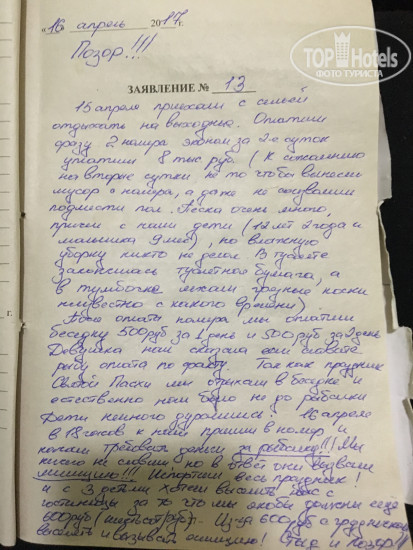 «16» апрель 2017г.
TOP Hotels
ФОТО ТУРИСТА
Позор!!!
ЗАЯВЛЕНИЕ № 13
15 апреля приехали с семьей
отдыхать на выходные. Оплатили
сразу 2 номера эконом за 2-е суток
уплатили 8 тыс руб. (К сожалению
на вторые сутки не то чтобы вынести
мусор с номера, а даже не
подмести пол. Песка очень много,
причем с нами дети (12 лет 2 года и
малышка 9 мес), но влажную
уборку никто не делал. В туалете
закончилась туалетная бумага, а
в тумбочке лежали грязные носки
неизвестно с какого времени)
оплаты номера мы оплатили
беседку 500 руб за 1 день и 500 руб за 2 день
Девушка нам сказала если словите
рыбу оплата по факту. Так как праздник
Святой Пасхи мы отдыхали в беседке и
естественно нам было не до рыбалки
Дети немного дурачились! 16 апреля
в 18 часов к нам пришли в номер и
начали требовать деньги за рыбалку!!! Мы
ничего не словили, но в ответ они вызвали
милицию!!! Испортили весь праздник!
и с 3 детьми хотели выселить нас с
гостиницы за то что мы якобы должны ещё
600 руб (шестьсот руб). Из-за 600 руб с грудничком
выселять и вызывать милицию! Позор!!!